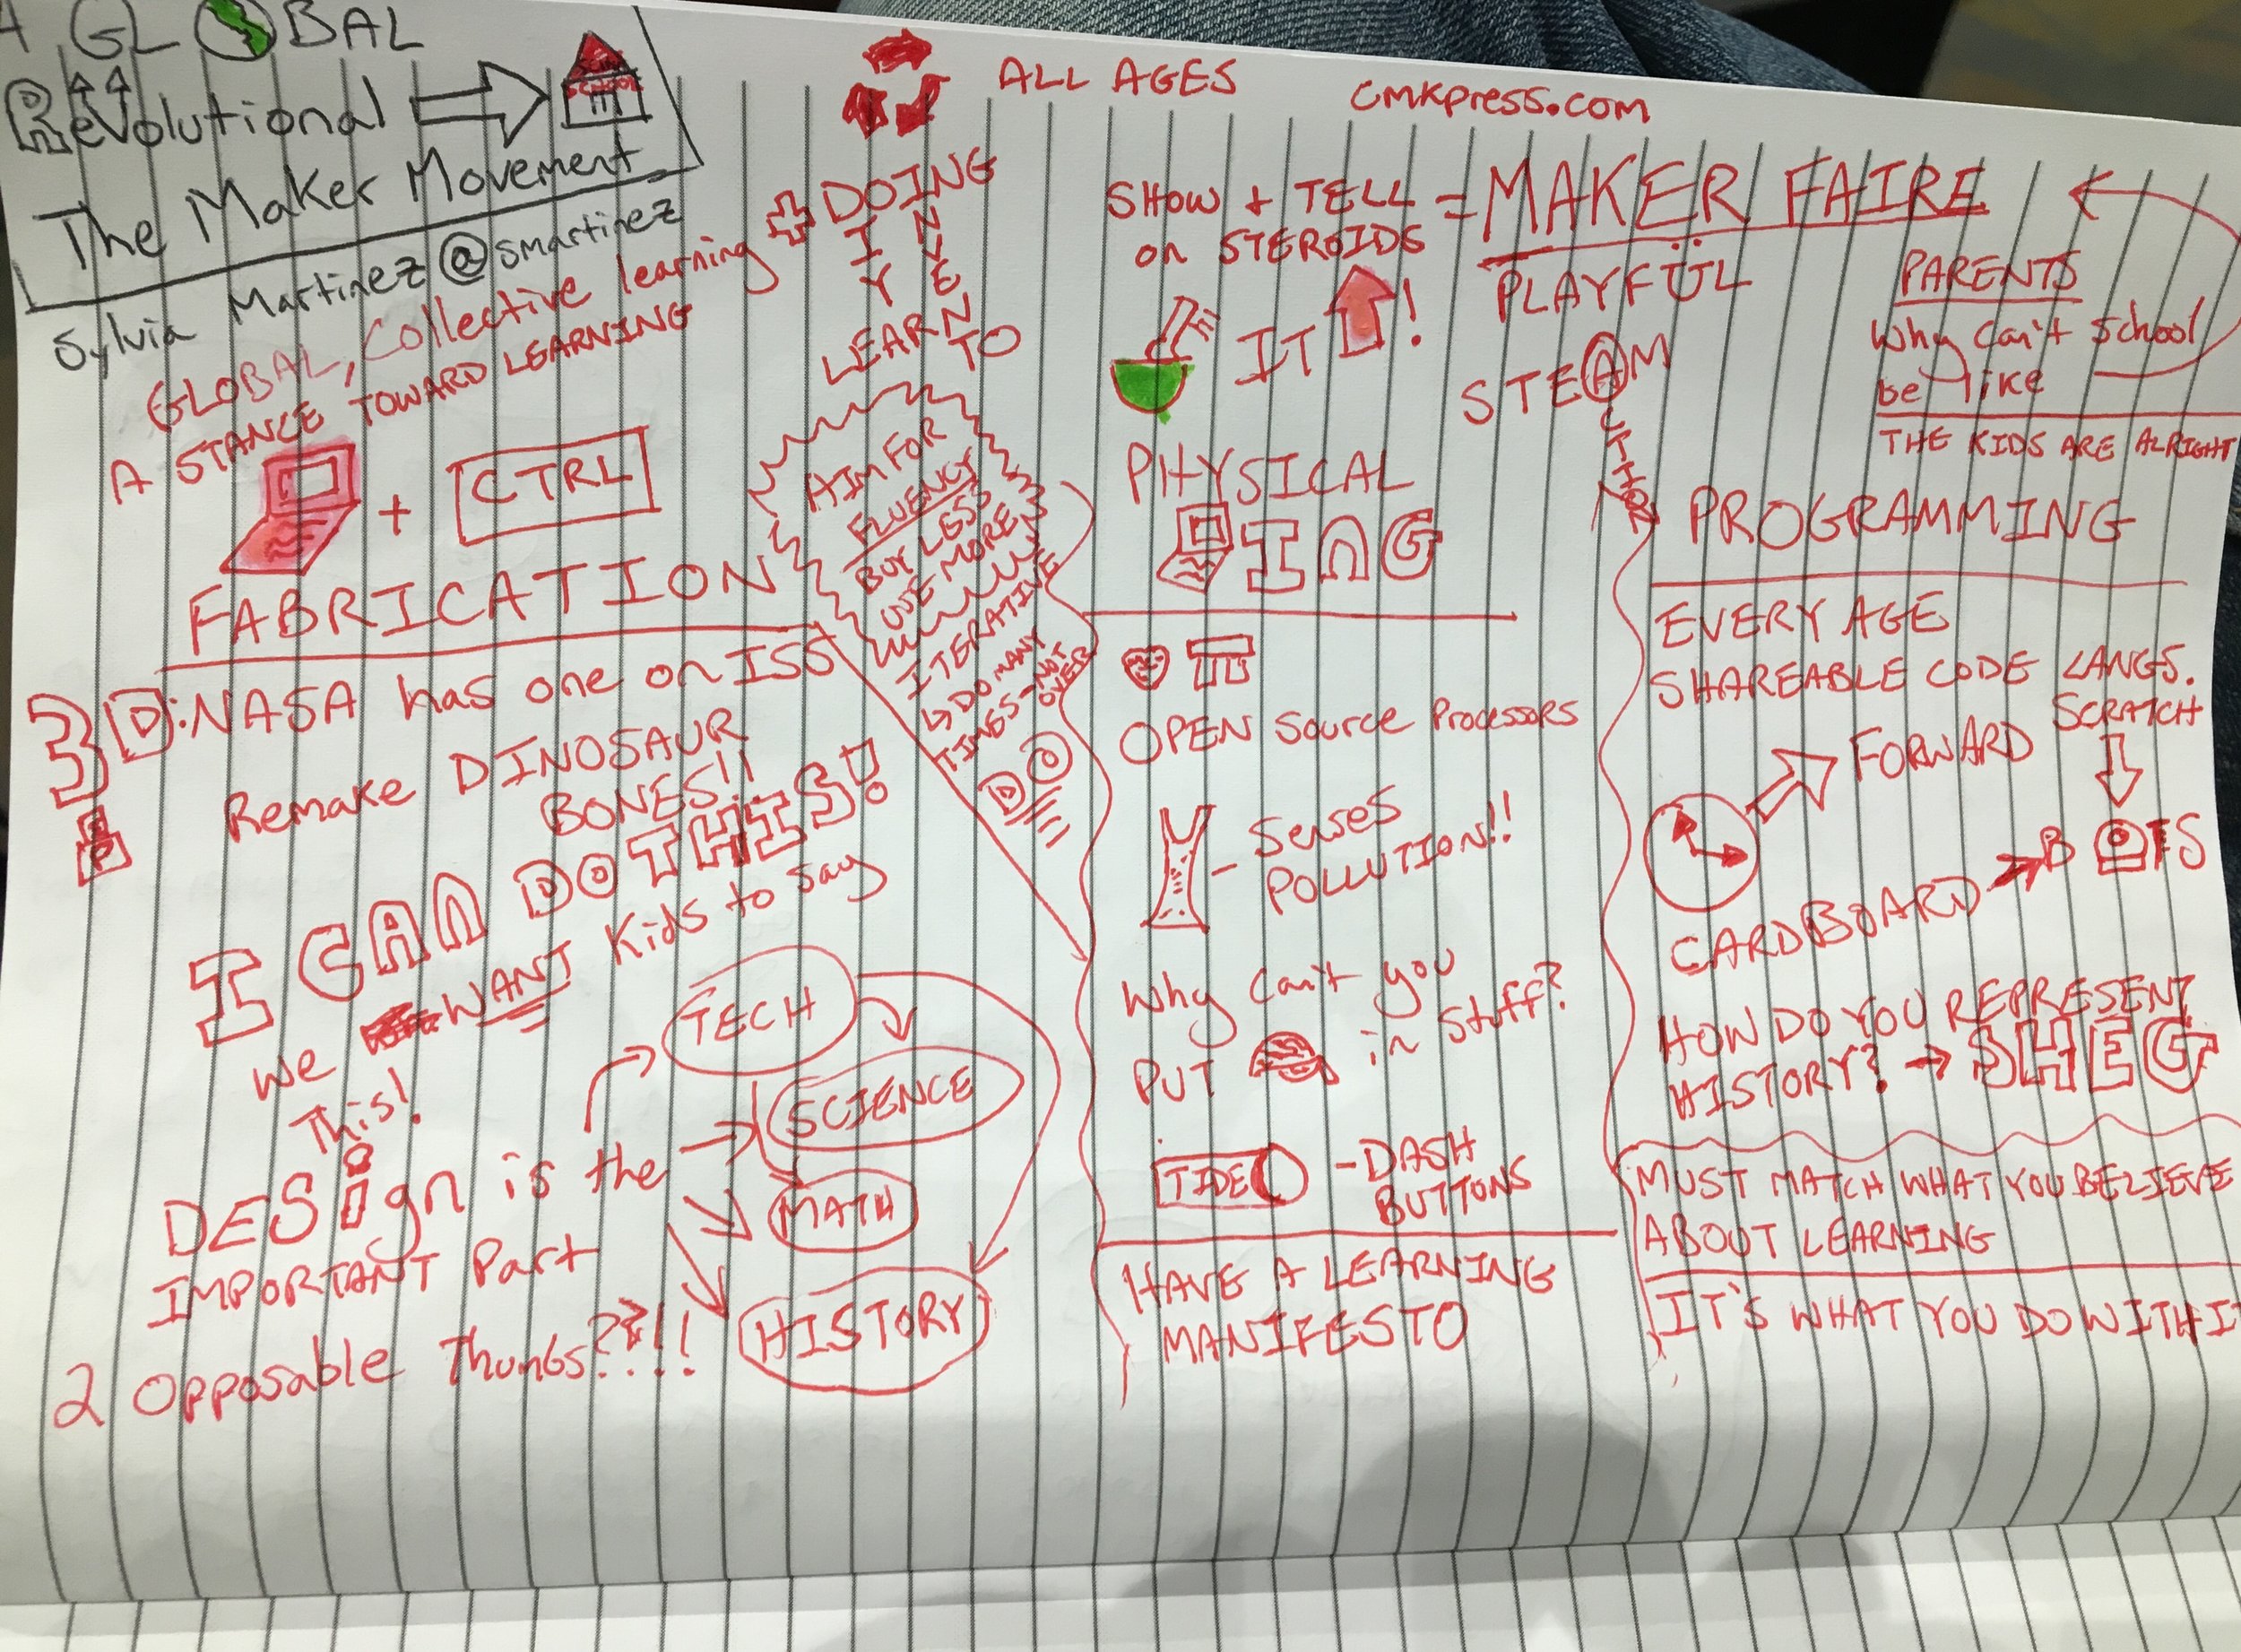 A GLOBAL
Revolutional
SCHOOL
The Maker Movement
Sylvia Martinez @smartinez
GLOBAL, Collective learning + DOING
A STANCE TOWARD LEARNING
DIY
INVENT
LEARN TO
+ CTRL
FABRICATION
3D: NASA has one on ISS
Remake DINOSAUR
BONES!!
I CAN DO THIS!
We WANT Kids to say
This!
DESign is the
IMPORTANT Part
2 Opposable Thumbs??!!
TECH
SCIENCE
MATH
HISTORY
AIM FOR
FLUENCY
BUY LESS
USE MORE
ITERATIVE
DO MANY
TIMES - NOT
OVER
DO
ALL AGES
cmkpress.com
SHOW + TELL = MAKER FAIRE
on STEROIDS
PLAYFÜL
IT !
STEAM
AUTHOR
PARENTS
Why Can't School
be like
THE KIDS ARE ALRIGHT
PHYSICAL
InG
OPEN Source Processors
- Senses
POLLUTION!!
Why Can't you
PUT in Stuff?
TIDE - DASH
BUTTONS
HAVE A LEARNING
MANIFESTO
PROGRAMMING
EVERY AGE
SHAREABLE CODE LANGS.
SCRATCH
FORWARD
CARDBOARD BOTS
HOW DO YOU REPRESENT
HISTORY? SHEG
MUST MATCH WHAT YOU BELIEVE
ABOUT LEARNING
IT'S WHAT YOU DO WITH IT